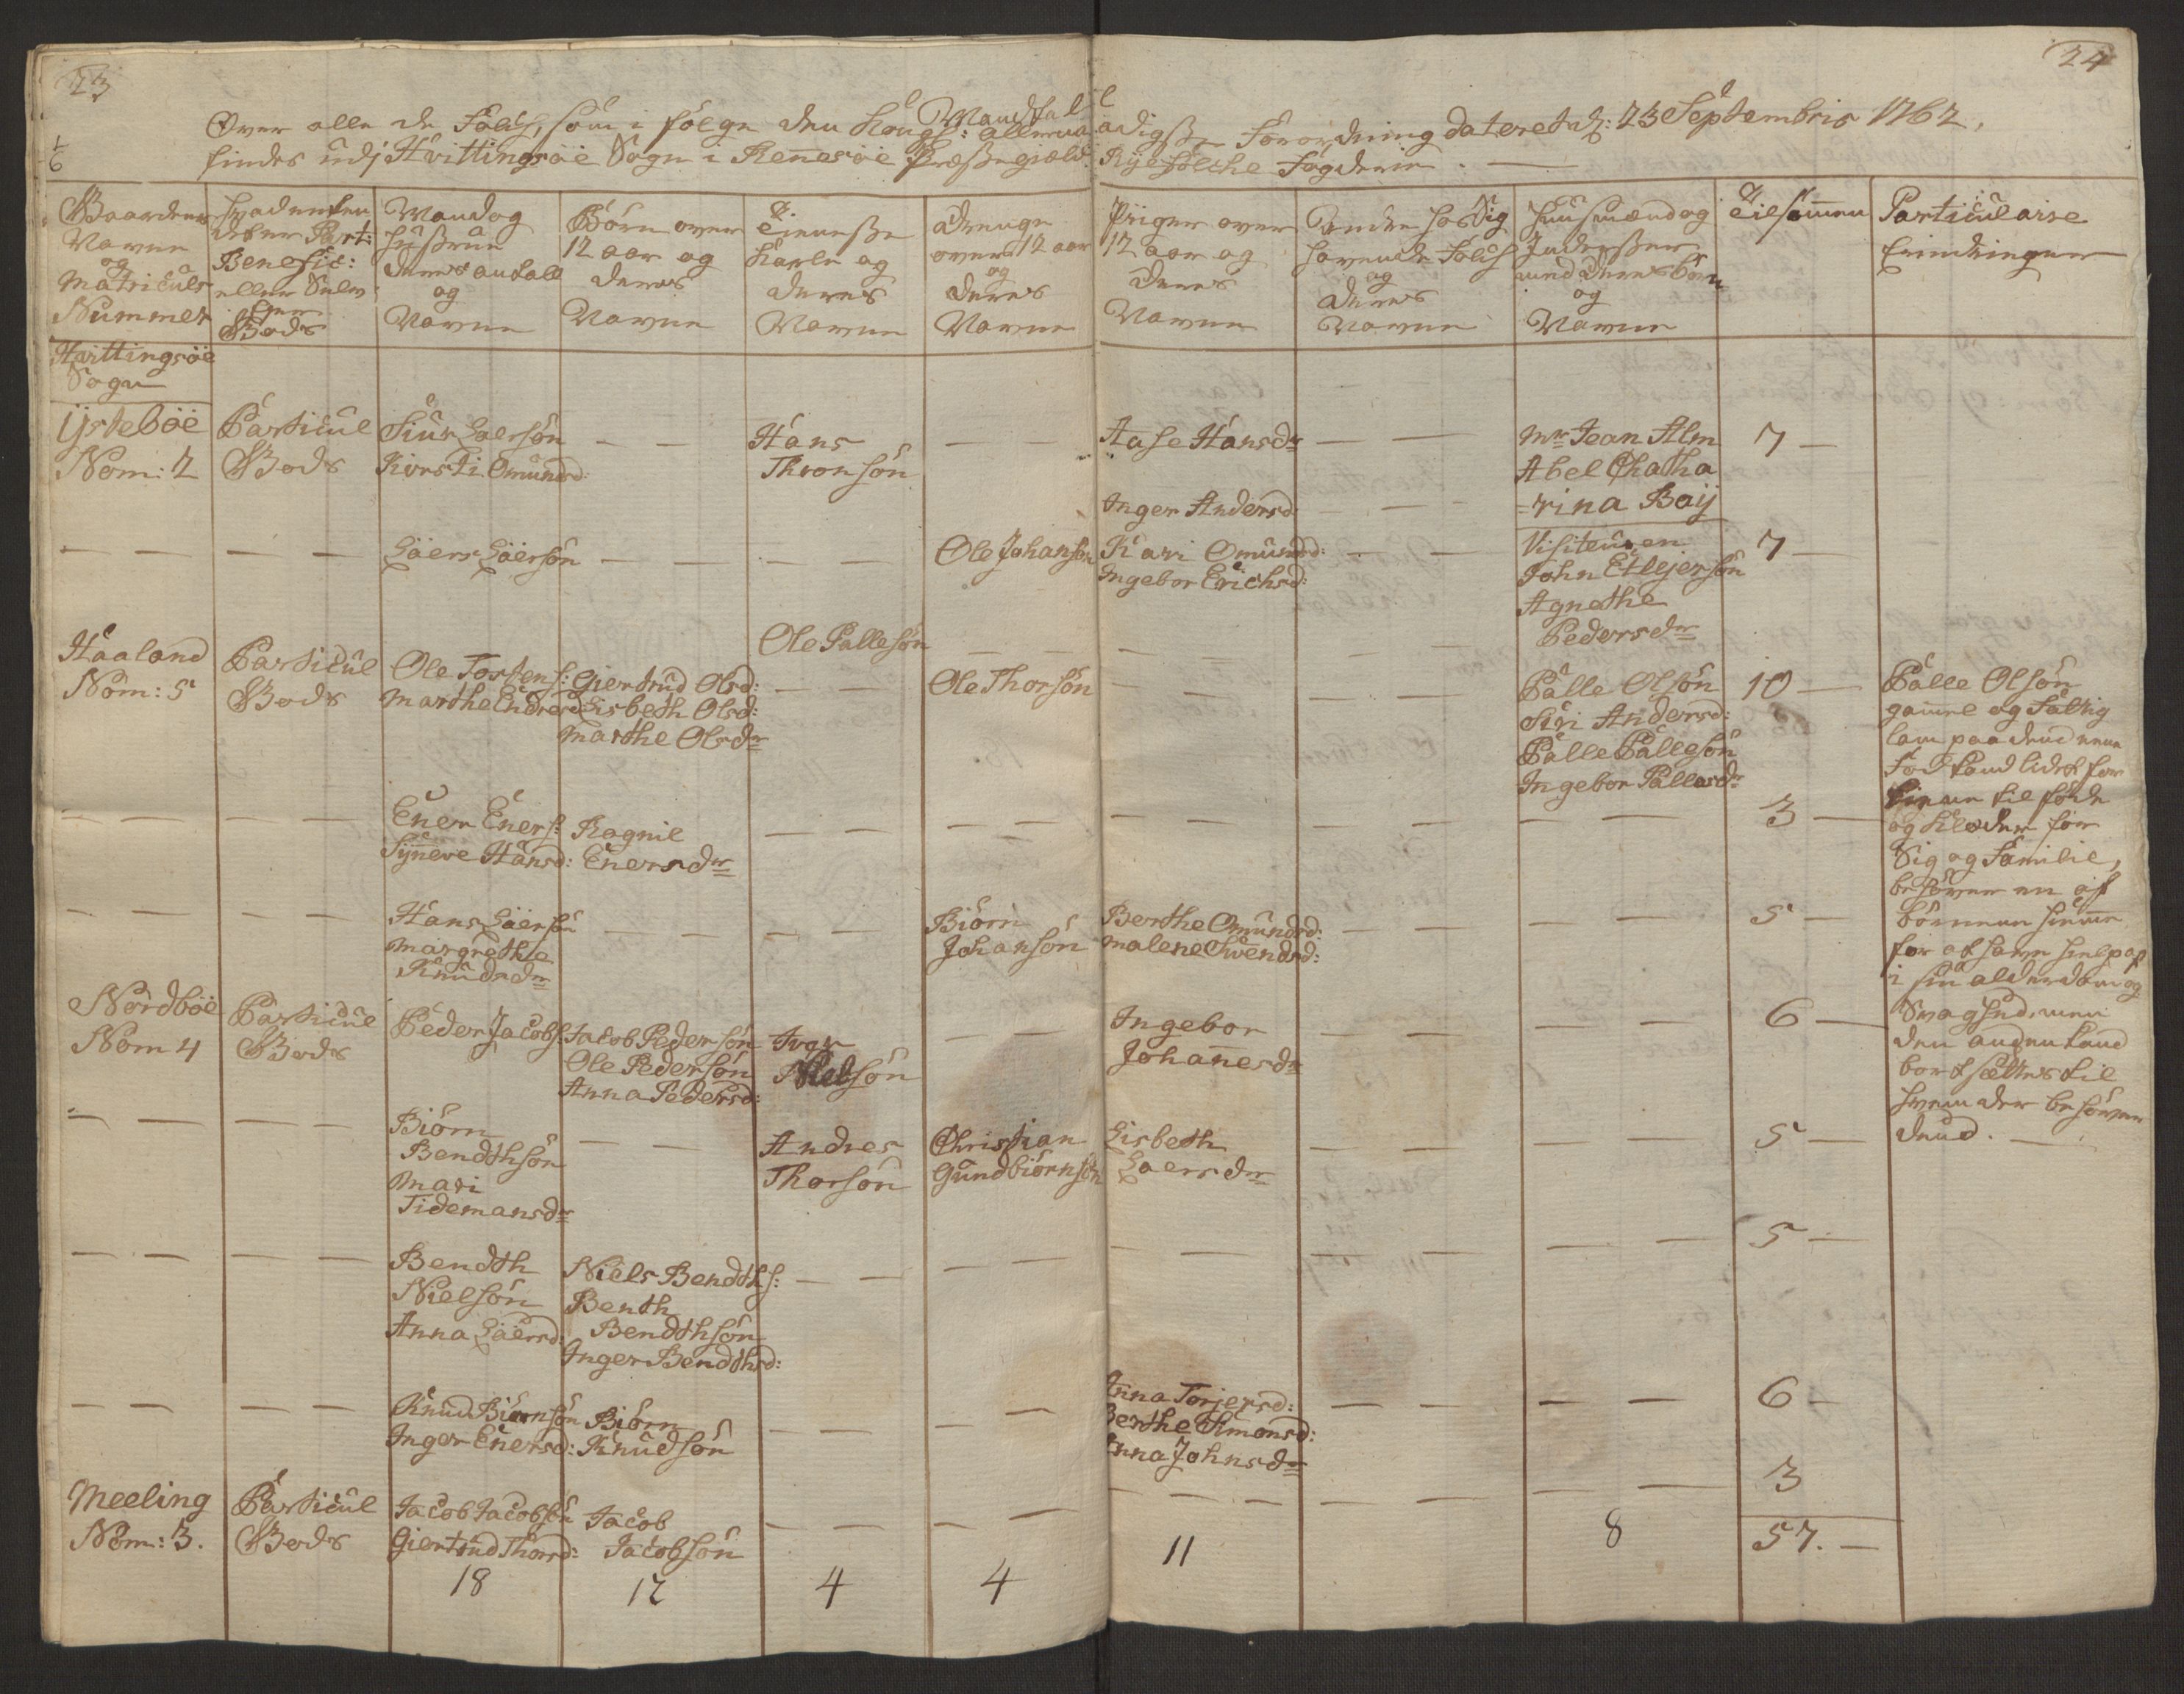 23
24
Mandtall
Over alle de Folch, som i følge den Kongl: allernaadigste Forordning dateret d: 23 Septembris 1762,
findes udj Hvittingsøe Sogn i Rennesøe Præstegield Ryefylche Fogderie.
Gaardens Navne og Matriculs Nummer
hvad enten det er Parti: Benefic: eller Selv Eyer Gods
Mand og Hustrue deres antall og Navne
Børn over 12 aar og deres Navne
Tieneste Karle og deres Navne
Drenge over 12 aar og deres Navne
Piiger over 12 aar og deres Navne
Andre hos Sig havende Folch og deres Navne
Huusmænd og Inderster med deres børn og Navne
Tilsammen
Particulaire Erindringer
Hvittingsøe
Sogn
Ystebøe Nom: 2
Particul Gods
Siur Laersøn
Kirsti Omundsd:
Hans
Thronsøn
Aase Hansdr
Inger Andersd:
Mr Jean Alm
Abel Chatha
=rina Baij
7
Laers Laersøn
Ole Johansøn
Kari Omundsd:
Ingebor Erichsd:
Visiteuren
John Etlejersøn
Agnethe
Pedersdr
7
Haaland
Nom: 5
Particul
Gods
Ole Tostens:
Marthe Endresd:
Giertrud Olsd:
Lisbeth Olsd:
Marthe Olsdr
Ole Pallesøn
Ole Thorsøn
Palle Olsøn
Siri Andersd:
Palle Pallesøn
Ingebor Pallesdr
10
Palle Olsøn
gammel og Fattig
lam paa den eene
Fod kand lidet for
tienne til føde
og Klæder for
Sig og Familie,
behøver en af
børnene hiemme
for at have hielp af
i sin alderdom og
Svaghed, men
den anden kand
bortsættes til
hvem der behøver
dend.
Ener Eners:
Synneve Hansd:
Ragnil
Enersdr
3
Hans Laersøn
Margrethe
Knudsdr
Biørn
Johansøn
Berthe Omundsd:
Malene Svendsd:
5
Nordbøe
Nom 4
Particul
Gods
Peder Jacobs:
Jacob Pedersøn
Ole Pedersøn
Anna Pedersd:
Iver
Nielsøn
Ingebor
Johannesdr
6
Biørn
Bendthsøn
Mari
Tidemansdr
Andres
Thorsøn
Christian
Gundbiørnsøn
Lisbeth
Laersdr
5
Bendth
Nielsøn
Anna Laersd:
Niels Bendths:
Benth
Bendthsøn
Inger Bendthsd:
5
Knud Biørnsøn
Inger Enersd:
Biørn
Knudsøn
Anna Torjersd:
Berthe Simonsd:
Anna Johnsdr
6
Meeling
Nom: 3.
Particul
Gods
Jacob Jacobsøn
Giertrud Thorsd:
Jacob
Jacobsøn
3
18
12
4
4
11
8
57.